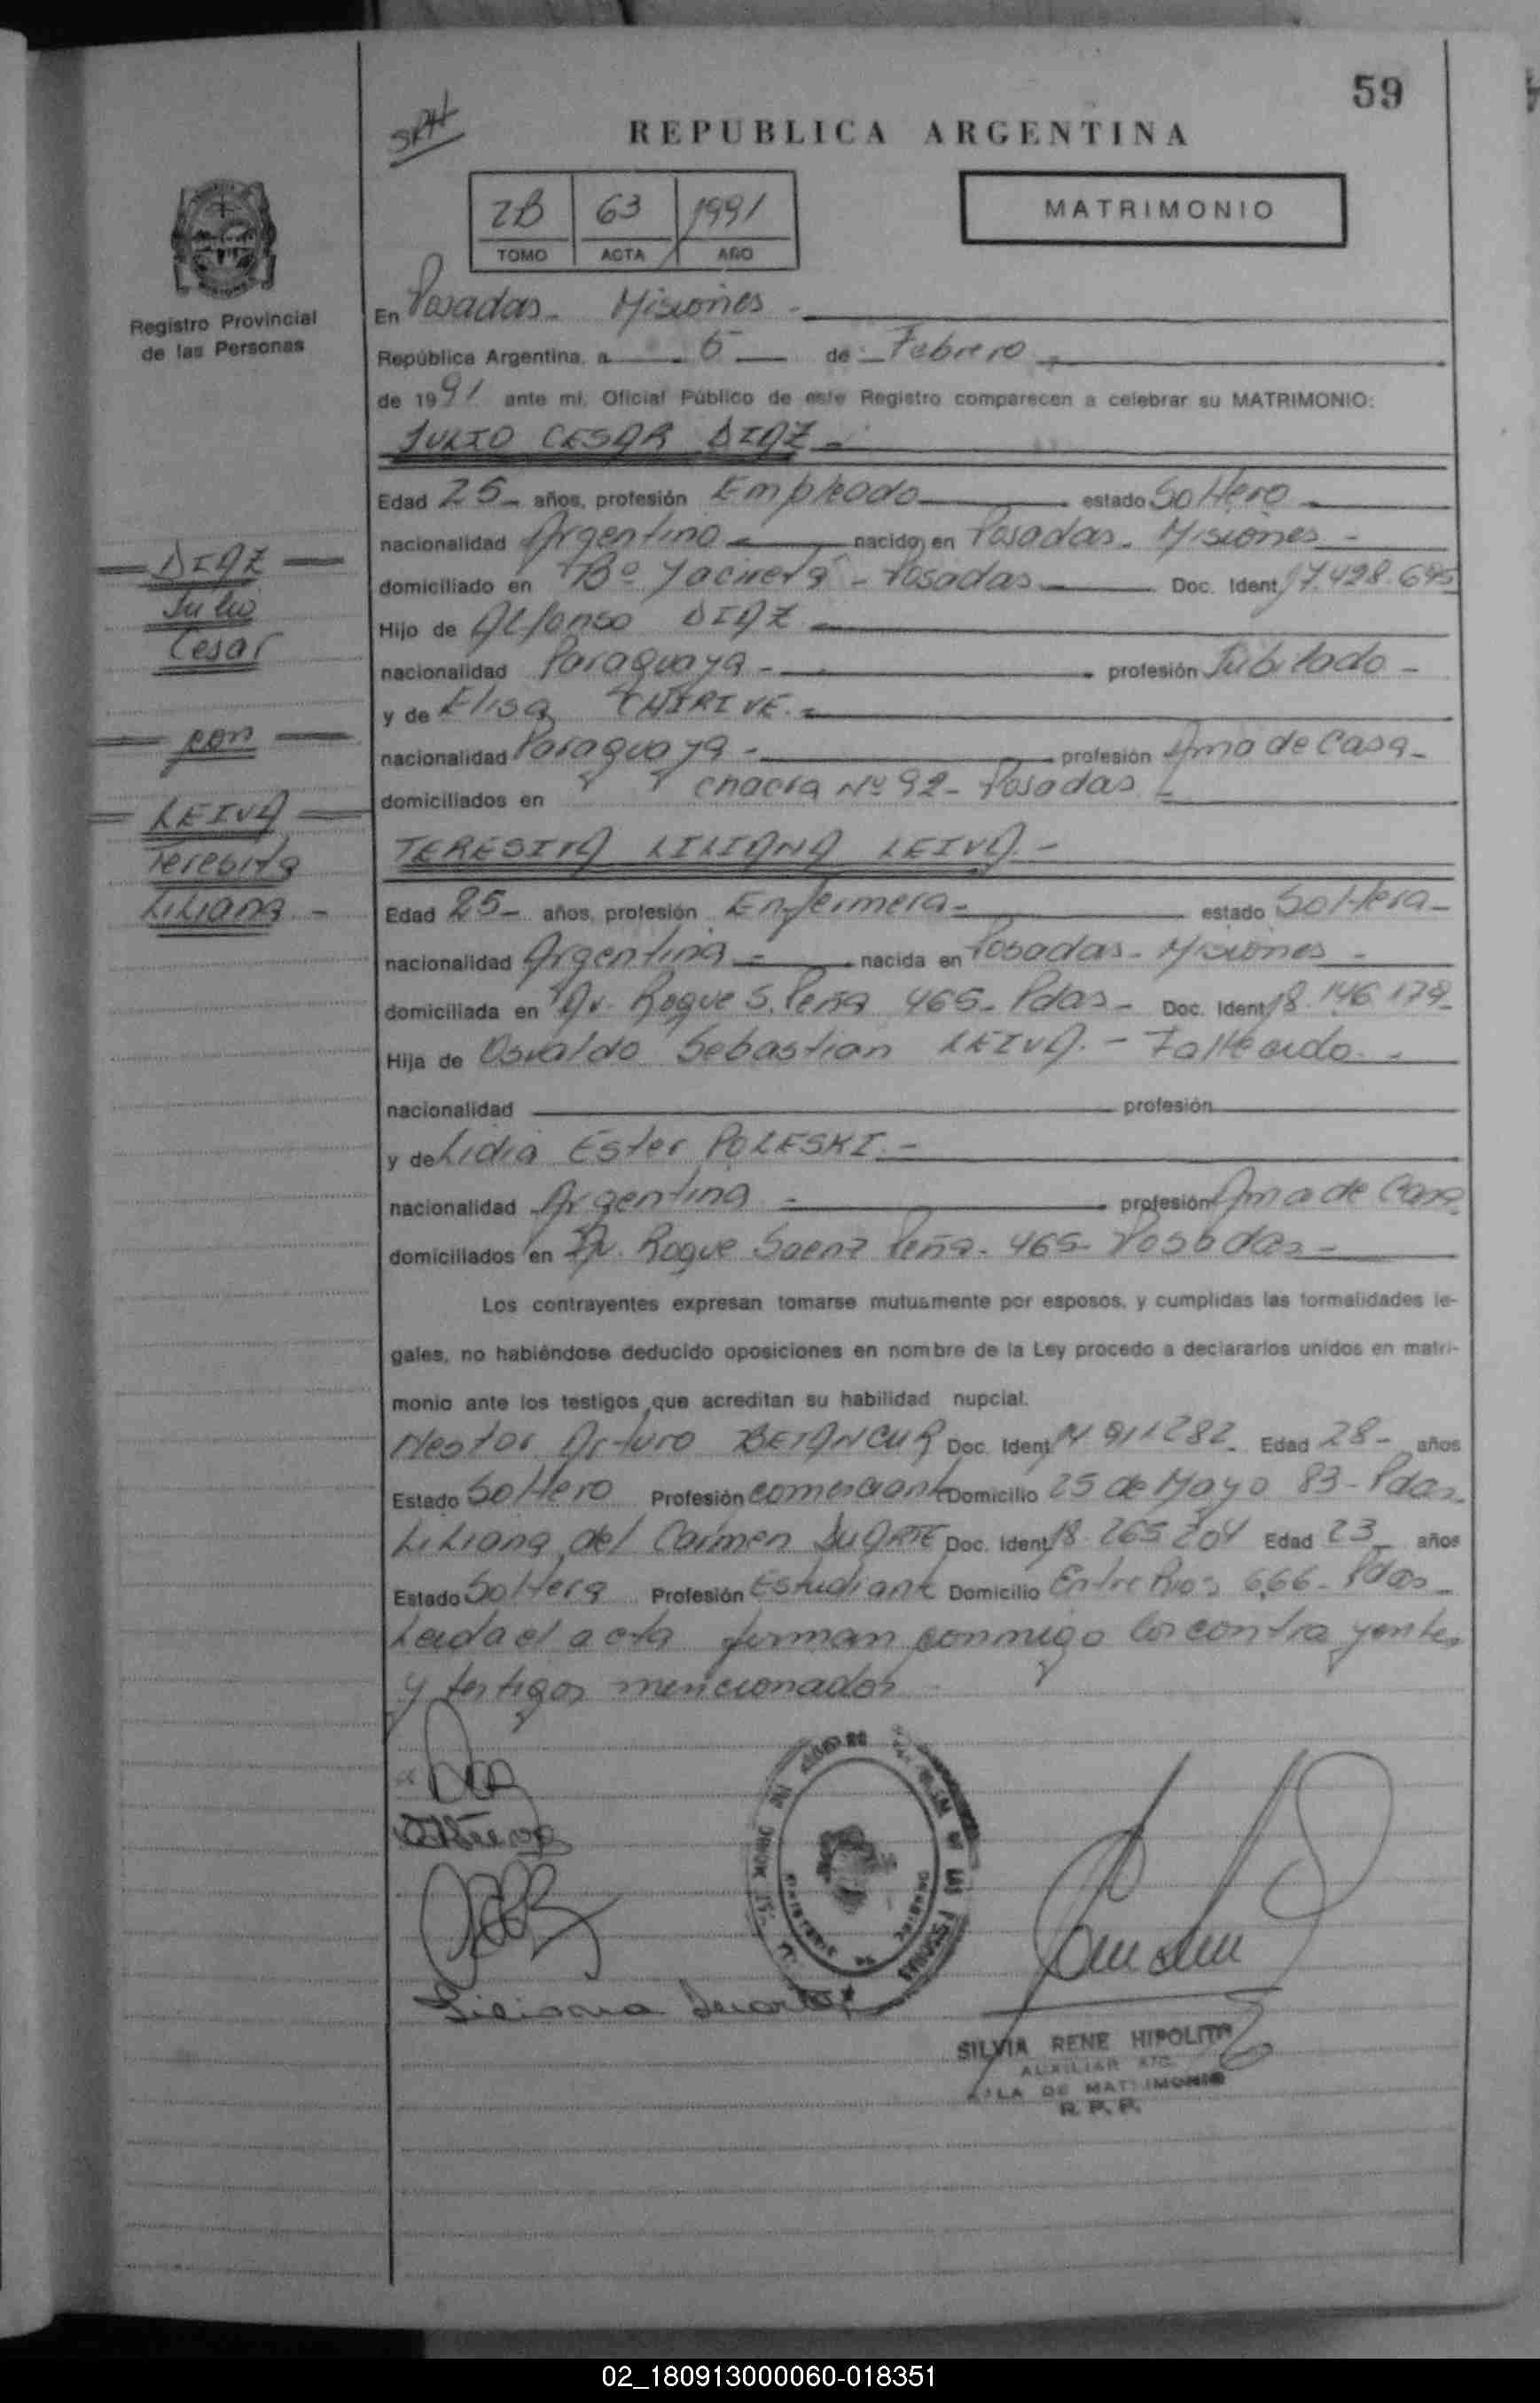 59
SRH
REPUBLICA ARGENTINA
2B 63 1991
TOMO ACTA AÑO
MATRIMONIO
Registro Provincial
de las Personas
En Posadas - Misiones -
República Argentina, a 5 de Febrero
de 1991 ante mi, Oficial Público de este Registro comparecen a celebrar su MATRIMONIO:
JULIO CESAR DIAZ -
Edad 25- años, profesión Empleado estado Soltero
nacionalidad Argentina nacido en Posadas - Misiones -
DIAZ
domiciliado en Bº Yacireta - Posadas Doc. Ident 17.428.695
Julio
Hijo de Alfonso DIAZ
Cesar
nacionalidad Paraguaya - profesión Jubilado -
y de Elisa CHIRIVE. -
con
nacionalidad Paraguaya - profesión Ama de Casa -
domiciliados en chacra Nº 92 - Posadas
LEIVA
TERESITA LILIANA LEIVA -
Teresita
Liliana -
Edad 25- años, profesión Enfermera - estado Soltera -
nacionalidad Argentina - nacida en Posadas - Misiones -
domiciliada en Av. Roque S. Peña 465 - Pdas - Doc. Ident 18.146.178-
Hija de Osvaldo Sebastian LEIVA. - Fallecido. -
nacionalidad profesión
y de Lidia Ester POLESKI. -
nacionalidad Argentina - profesión Ama de Casa
domiciliados en Av. Roque Saenz Peña - 465 - Posadas -
Los contrayentes expresan tomarse mutuamente por esposos, y cumplidas las formalidades le-
gales, no habiéndose deducido oposiciones en nombre de la Ley procedo a declararlos unidos en matri-
monio ante los testigos que acreditan su habilidad nupcial.
Nestor Arturo BETANCUR Doc. Ident 14 911282 Edad 28- años
Estado Soltero Profesión comerciante Domicilio 25 de Mayo 83 - Pdas.
Liliana del Carmen DUARTE Doc. Ident 18 265 204 Edad 23 años
Estado Soltera Profesión Estudiante Domicilio Entre Rios 666 - Pdas
Leida el acta firman conmigo los contrayentes
y testigos mencionados
Liliana Duarte
SILVIA RENE HIPOLITO
AUXILIAR
SALA DE MATRIMONIO
R. P. P.
02_180913000060-018351